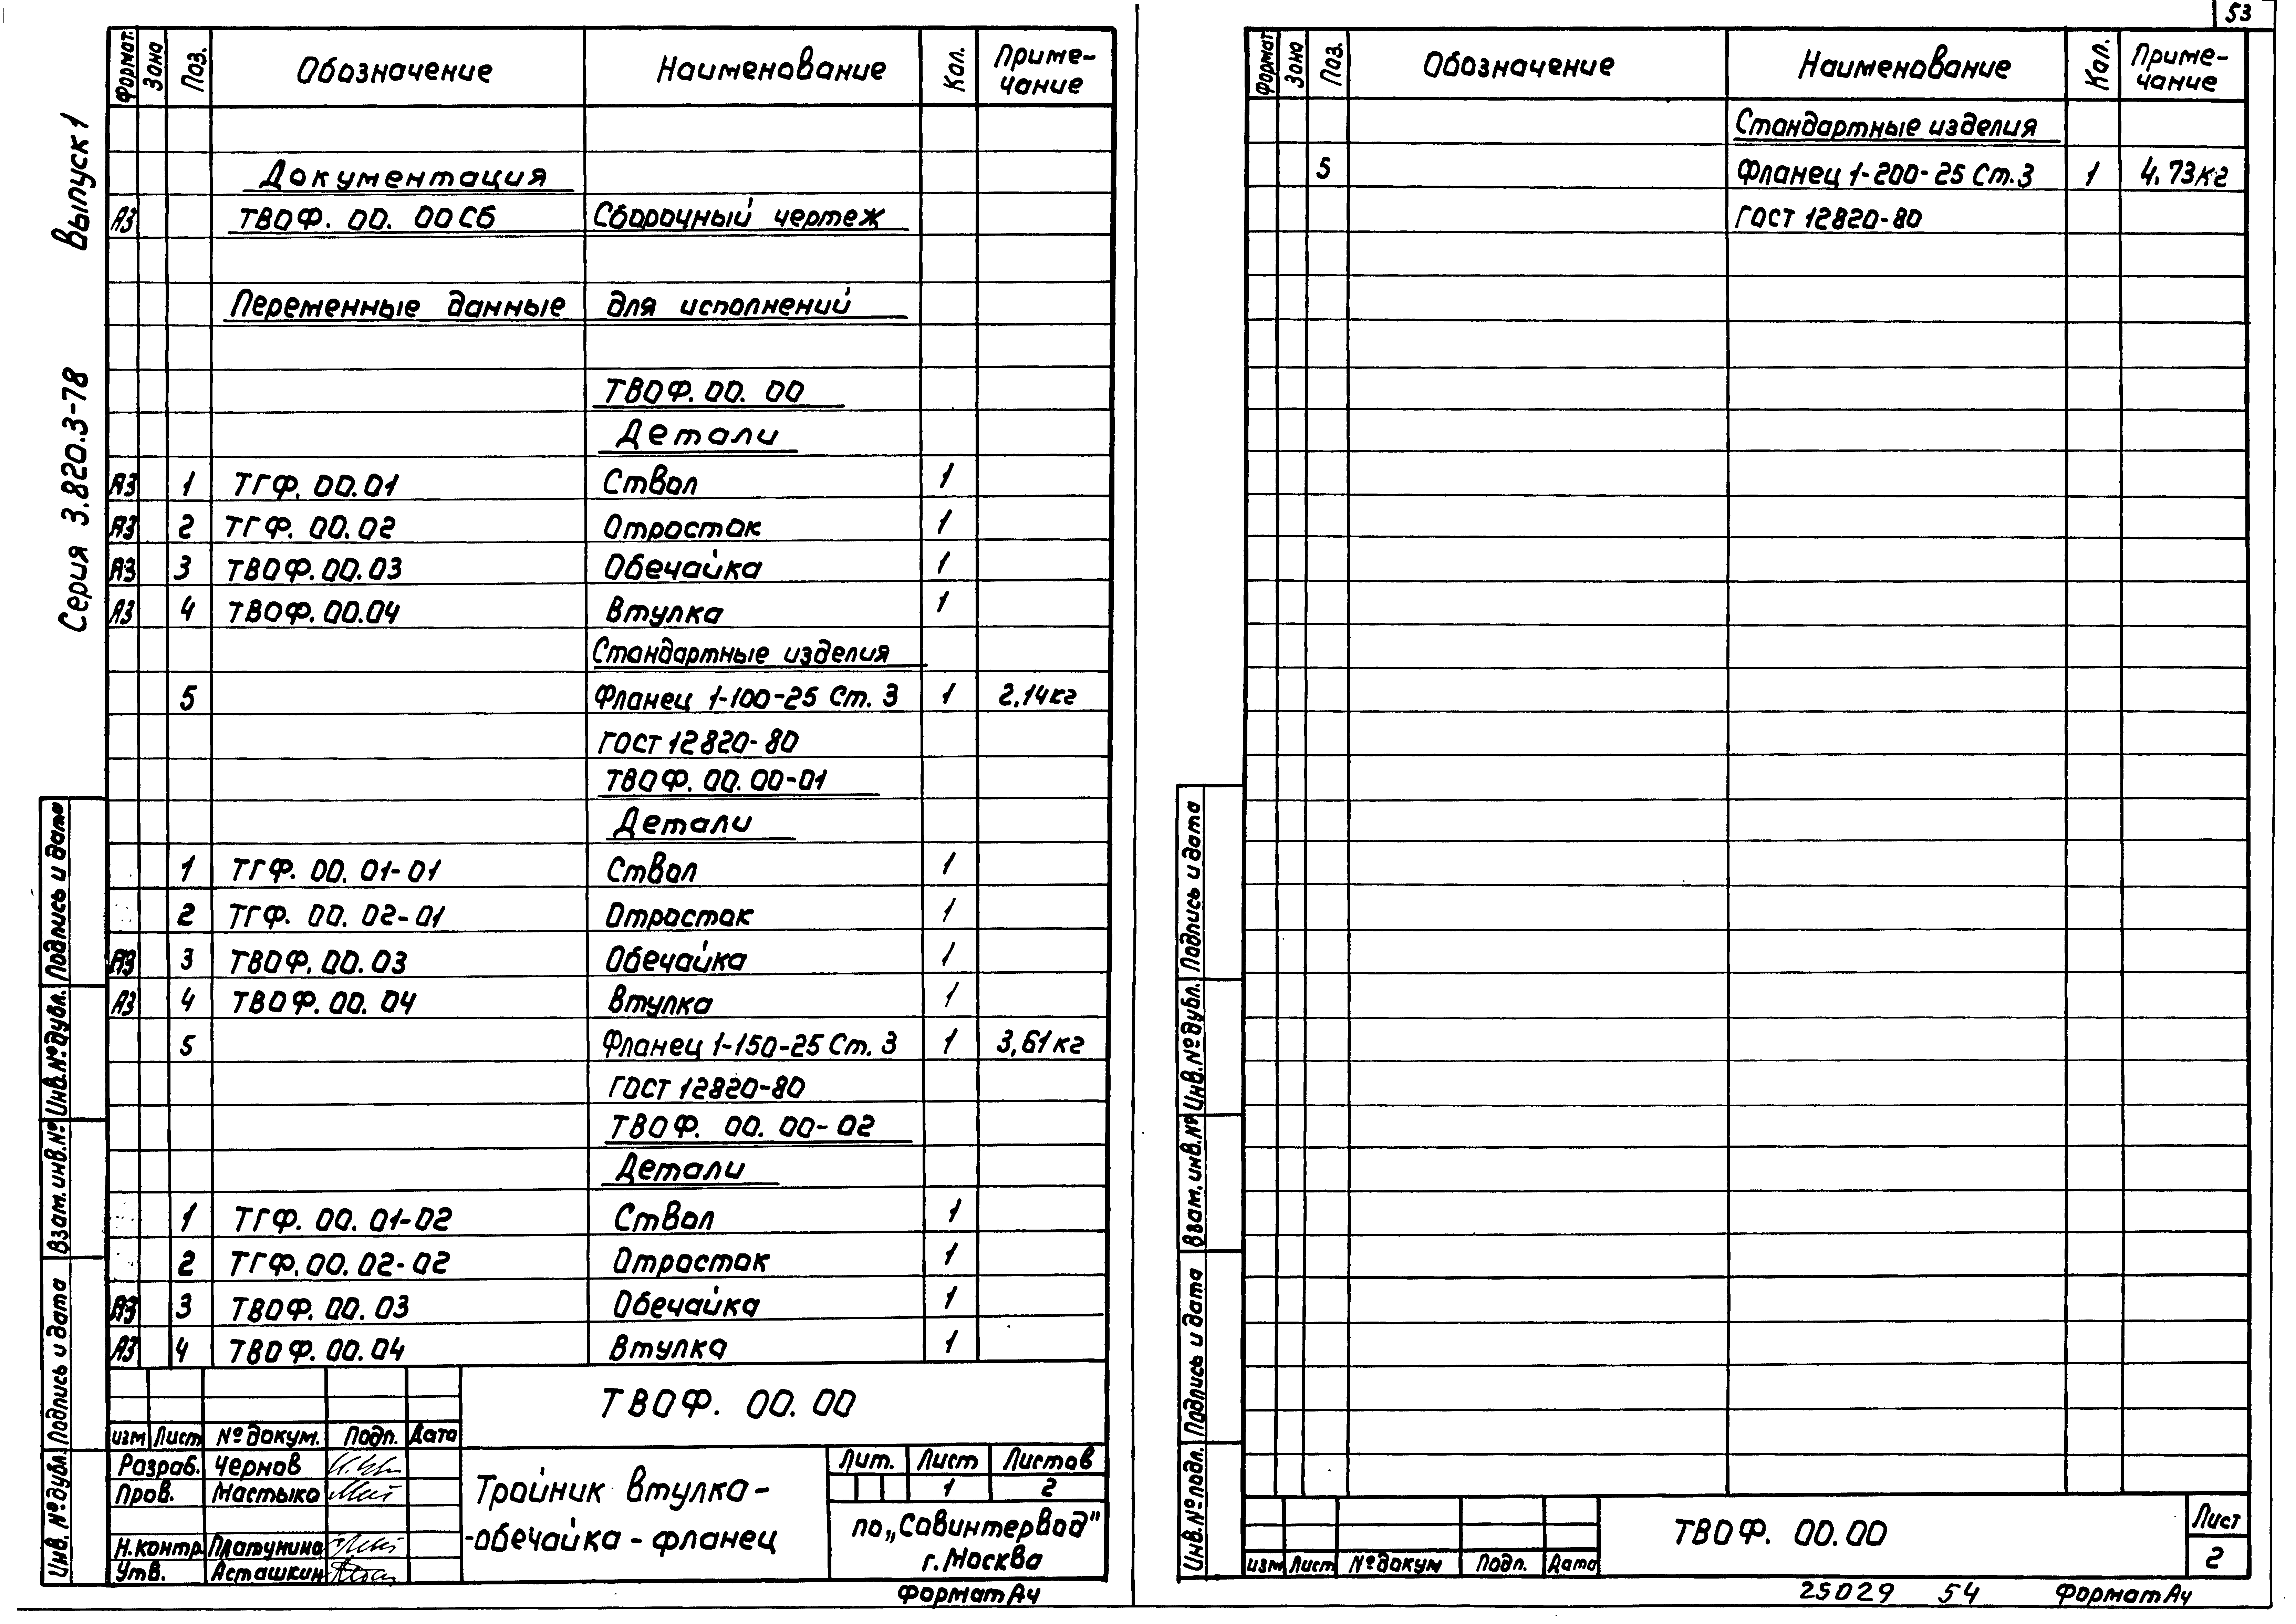 Выпуск 1
Серия 3.820.3-78
Формат. Зона Поз. Обозначение Наименование Кол. Приме-
чание
Документация
А3 ТВОФ. 00. 00СБ Сборочный чертеж
Переменные данные для исполнений
ТВОФ. 00. 00
Детали
А3 1 ТГФ. 00.01 Ствол 1
А3 2 ТГФ. 00.02 Отросток 1
А3 3 ТВОФ.00.03 Обечайка 1
А3 4 ТВОФ.00.04 Втулка 1
Стандартные изделия
5 Фланец 1-100-25 Ст. 3 1 2,14кг
ГОСТ 12820-80
ТВОФ. 00. 00-01
Детали
1 ТГФ. 00. 01-01 Ствол 1
2 ТГФ. 00. 02-01 Отросток 1
А3 3 ТВОФ. 00. 03 Обечайка 1
А3 4 ТВОФ. 00. 04 Втулка 1
5 Фланец 1-150-25 Ст. 3 1 3,61кг
ГОСТ 12820-80
ТВОФ. 00. 00-02
Детали
1 ТГФ. 00. 01-02 Ствол 1
2 ТГФ. 00. 02-02 Отросток 1
А3 3 ТВОФ. 00. 03 Обечайка 1
А3 4 ТВОФ. 00. 04 Втулка 1
ТВОФ. 00. 00
изм Лист № докум. Подп. Дата
Разраб. Чернов
Пров. Мастыко
Н.контр. Платунина
Утв. Асташкин
Тройник втулка-
-обечайка-фланец
Лит. Лист Листов
1 2
ПО „Совинтервод"
г. Москва
Формат А4
Подпись и дата
Инв.№ дубл.
Взам. инв.№
Подпись и дата
Инв. № дубл.
53
Формат Зона Поз. Обозначение Наименование Кол. Приме-
чание
Стандартные изделия
5 Фланец 1-200-25 Ст.3 1 4.73кг
ГОСТ 12820-80
Подпись и дата
Инв.№ дубл.
Взам. инв.№
Подпись и дата
Инв.№ подл.
ТВОФ. 00.00
Лист
2
изм Лист № докум Подп. Дата
25029 54 Формат А4